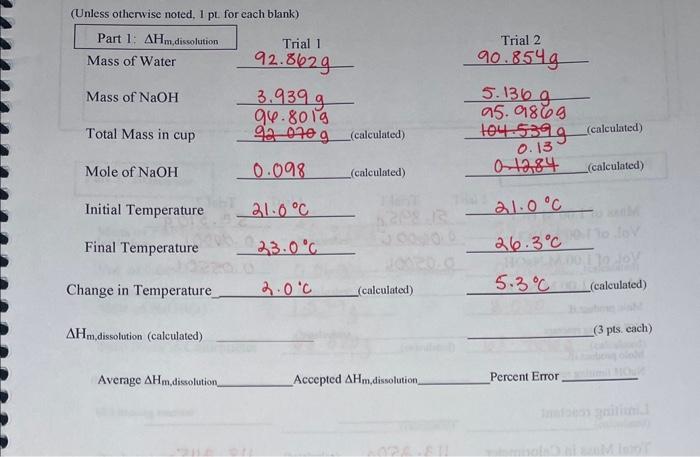 (Unless otherwise noted, 1 pt. for each blank)
Part 1: ΔHm,dissolution Trial 1 Trial 2
Mass of Water 92.862g 90.854g
Mass of NaOH 3.939 g 5.136 g
96.801g 95.986g
Total Mass in cup 92.070g (calculated) 104.539g (calculated)
0.13
Mole of NaOH 0.098 (calculated) 0.1284 (calculated)
Initial Temperature 21.0°C 21.0°C
Final Temperature 23.0°C 26.3°C
Change in Temperature 2.0°C (calculated) 5.3°C (calculated)
ΔHm,dissolution (calculated) (3 pts. each)
Average ΔHm,dissolution Accepted ΔHm,dissolution Percent Error